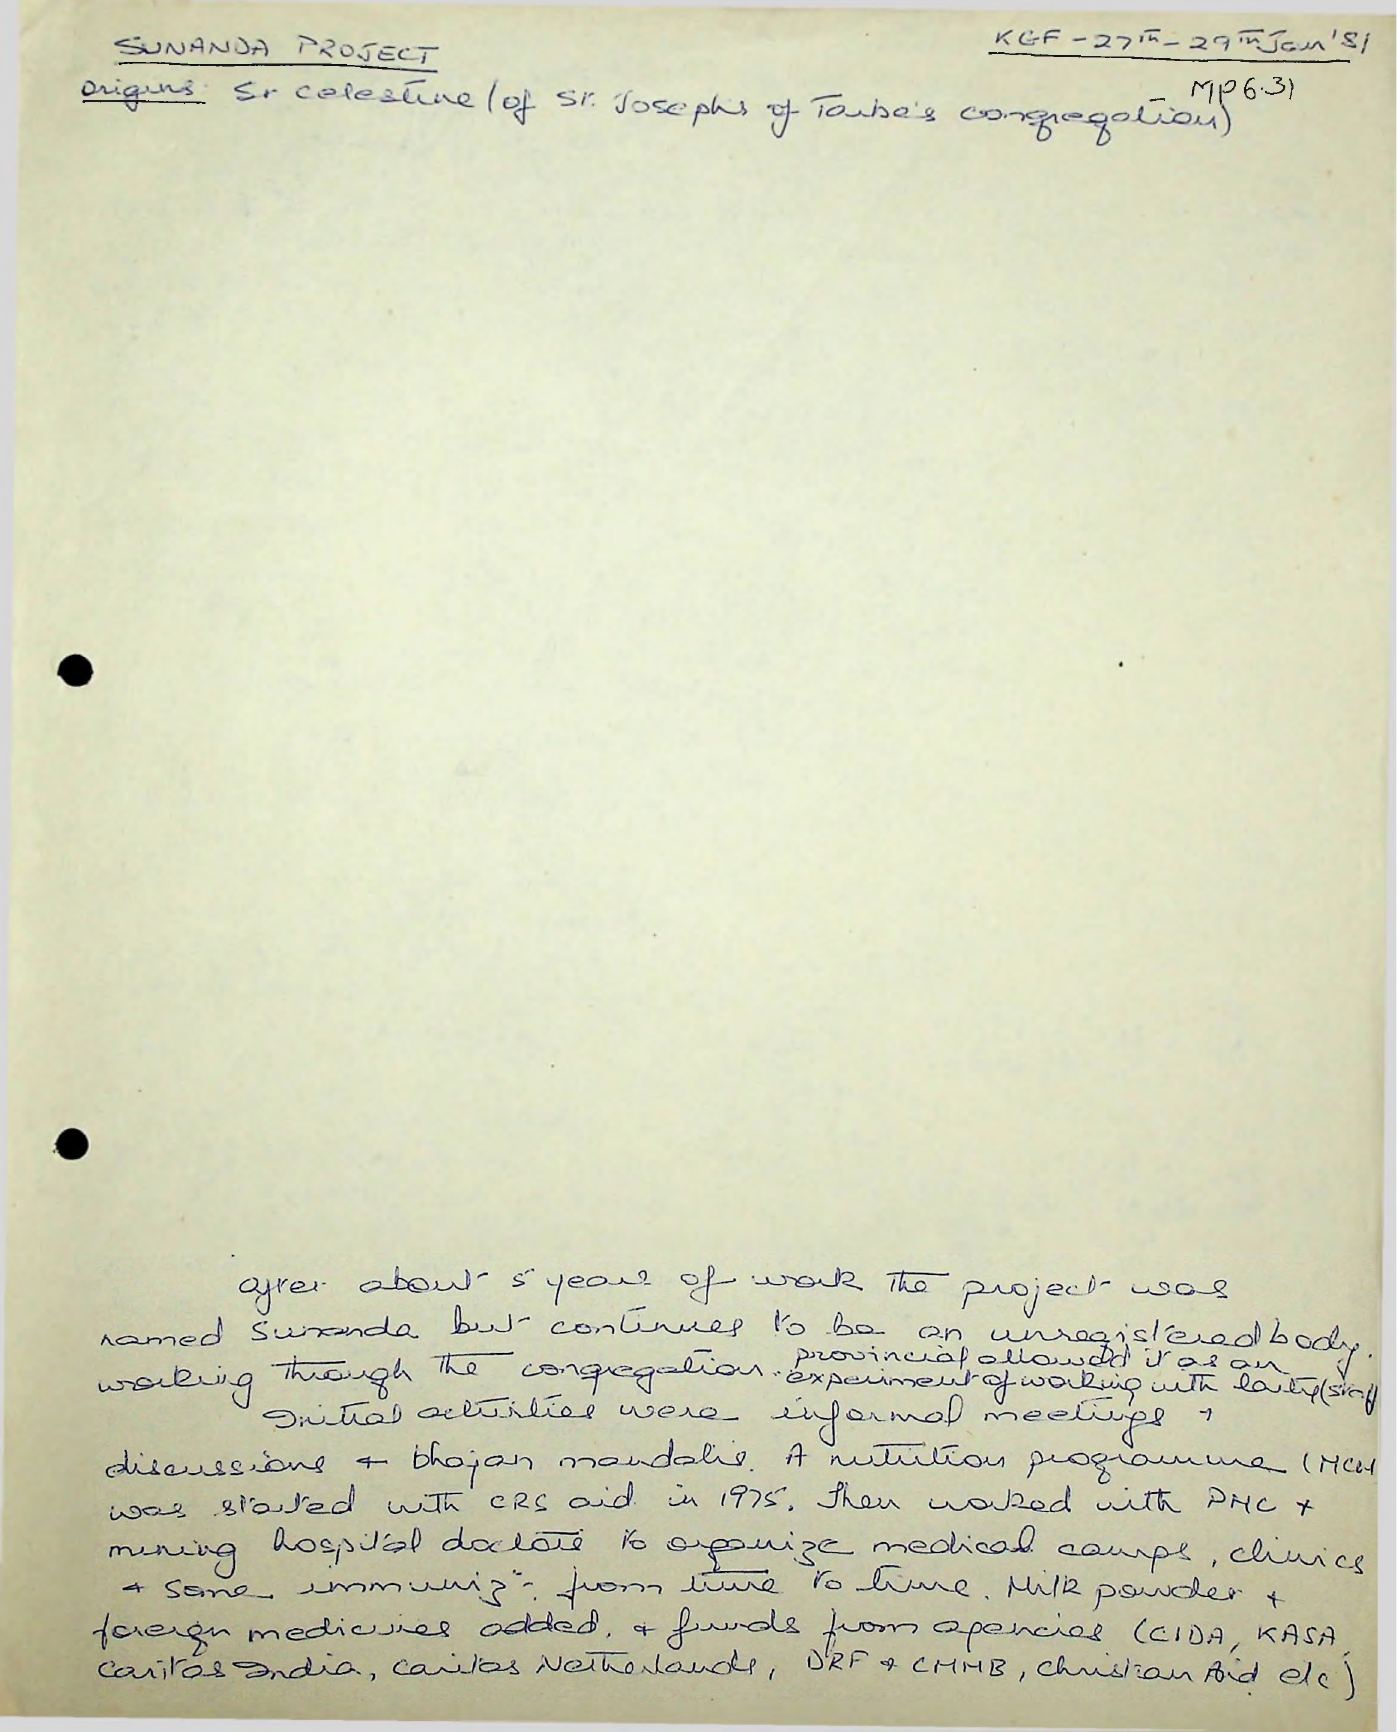 SUNANDA PROJECT
KGF - 27th - 29th Jan '81
MP 6.31
Origins: Sr Celestine (of St. Josephs of Tarbe's congregation)
After about 5 years of work the project was
named Sunanda but continues to be an unregistered body.
working through the congregation. provincial allowed it as an
experiment of working with laity (staff
Initial activities were informal meetings +
discussions + bhajan mandalis. A nutrition programme (MCH
was started with CRS aid in 1975. Then worked with PHC +
mining hospital doctors to organize medical camps, clinics
+ some immunizn. from time to time. Milk powder +
foreign medicines added. + funds from agencies (CIDA, KASA,
Caritas India, Caritas Netherlands, DRF + CMMB, Christian Aid etc)